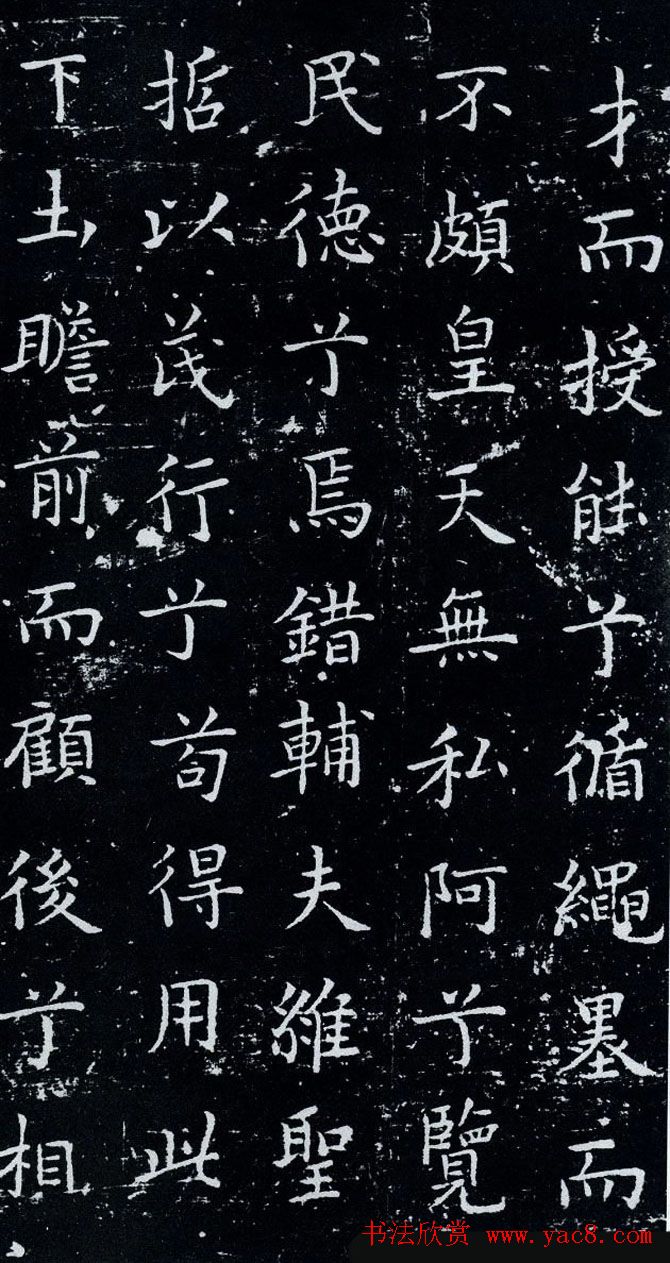 才而授能兮循繩墨而
不頗皇天無私阿兮覽
民德兮焉錯輔夫維聖
哲以茂行兮苟得用此
下土瞻前而顧後兮相
书法欣赏 www.yac8.com